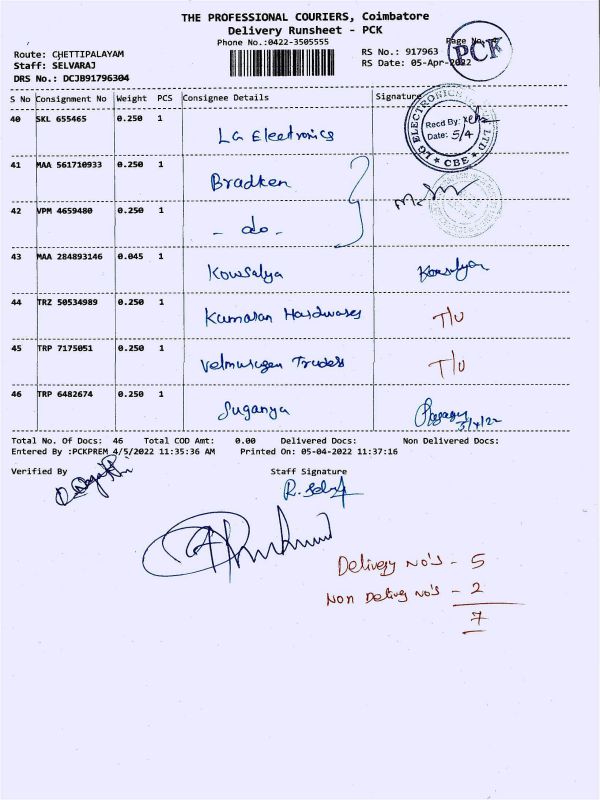 THE PROFESSIONAL COURIERS, Coimbatore
Delivery Runsheet - PCK
Phone No.:0422-3505555
Page No.
PCK
Route: CHETTIPALAYAM
Staff: SELVARAJ
DRS No.: DCJB91796304
RS No.: 917963
RS Date: 05-Apr-2022
S No Consignment No Weight PCS Consignee Details Signature
40 SKL 655465 0.250 1 LG Electronics
LG ELECTRONICS LTD
Recd By:
Date: 5/4
★ CBE ★
41 MAA 561710933 0.250 1 Bradken
42 VPM 4659480 0.250 1 - do -
43 MAA 284893146 0.045 1 Kowsalya Kowsalya
44 TRZ 50534989 0.250 1 Kumaran Hardwares T/U
45 TRP 7175051 0.250 1 Velmurugan Traders T/U
46 TRP 6482674 0.250 1 Suganya
Total No. Of Docs: 46 Total COD Amt: 0.00 Delivered Docs: Non Delivered Docs:
Entered By :PCKPREM 4/5/2022 11:35:36 AM Printed On: 05-04-2022 11:37:16
Verified By Staff Signature
Delivery No's - 5
Non Delivy No's - 2
7